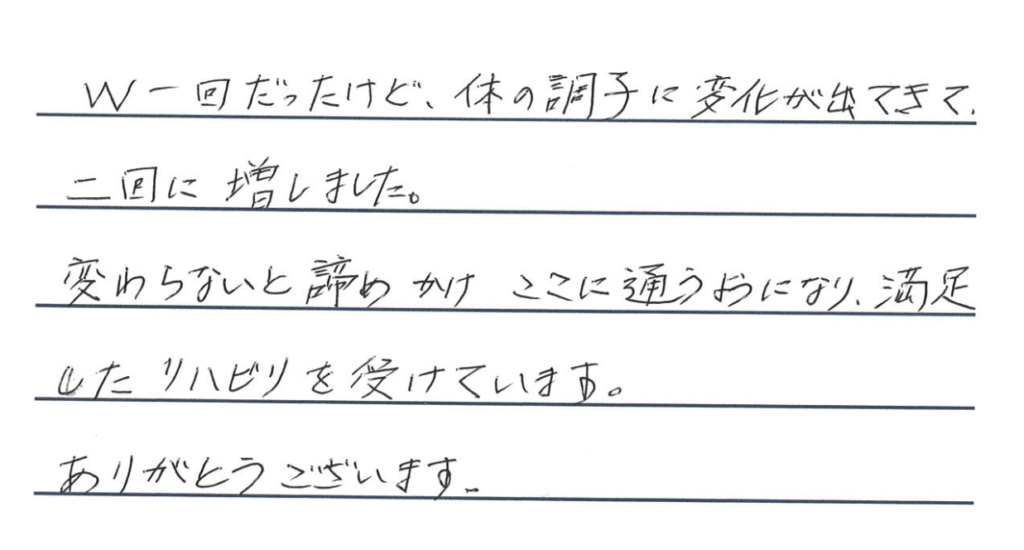 W一回だったけど、体の調子に変化が出てきて、
二回に増しました。
変わらないと諦めかけ ここに通うようになり、満足
したリハビリを受けています。
ありがとうございます。